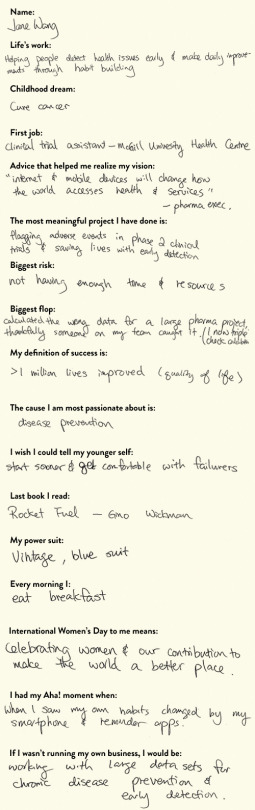 Name:
Jane Wang
Life's work:
Helping people detect health issues early & make daily improve-
ments through habit building
Childhood dream:
Cure cancer
First job:
clinical trial assistant - McGill University Health Centre
Advice that helped me realize my vision:
"internet & mobile devices will change how
the world accesses health & services"
- pharma exec.
The most meaningful project I have done is:
flagging adverse events in phase 2 clinical
trials & saving lives with early detection
Biggest risk:
not having enough time & resources
Biggest flop:
calculated the wrong data for a large pharma project
thankfully someone on my team caught it. (I now triple
check
My definition of success is:
>1 million lives improved (quality of life)
The cause I am most passionate about is:
disease prevention
I wish I could tell my younger self:
start sooner & get comfortable with failures
Last book I read:
Rocket Fuel - Gino Wickman
My power suit:
Vintage, blue suit
Every morning I:
eat breakfast
International Women's Day to me means:
Celebrating women & our contribution to
make the world a better place.
I had my Aha! moment when:
When I saw my own habits changed by my
smartphone & reminder apps.
If I wasn't running my own business, I would be:
working with large data sets for
chronic disease prevention &
early detection.